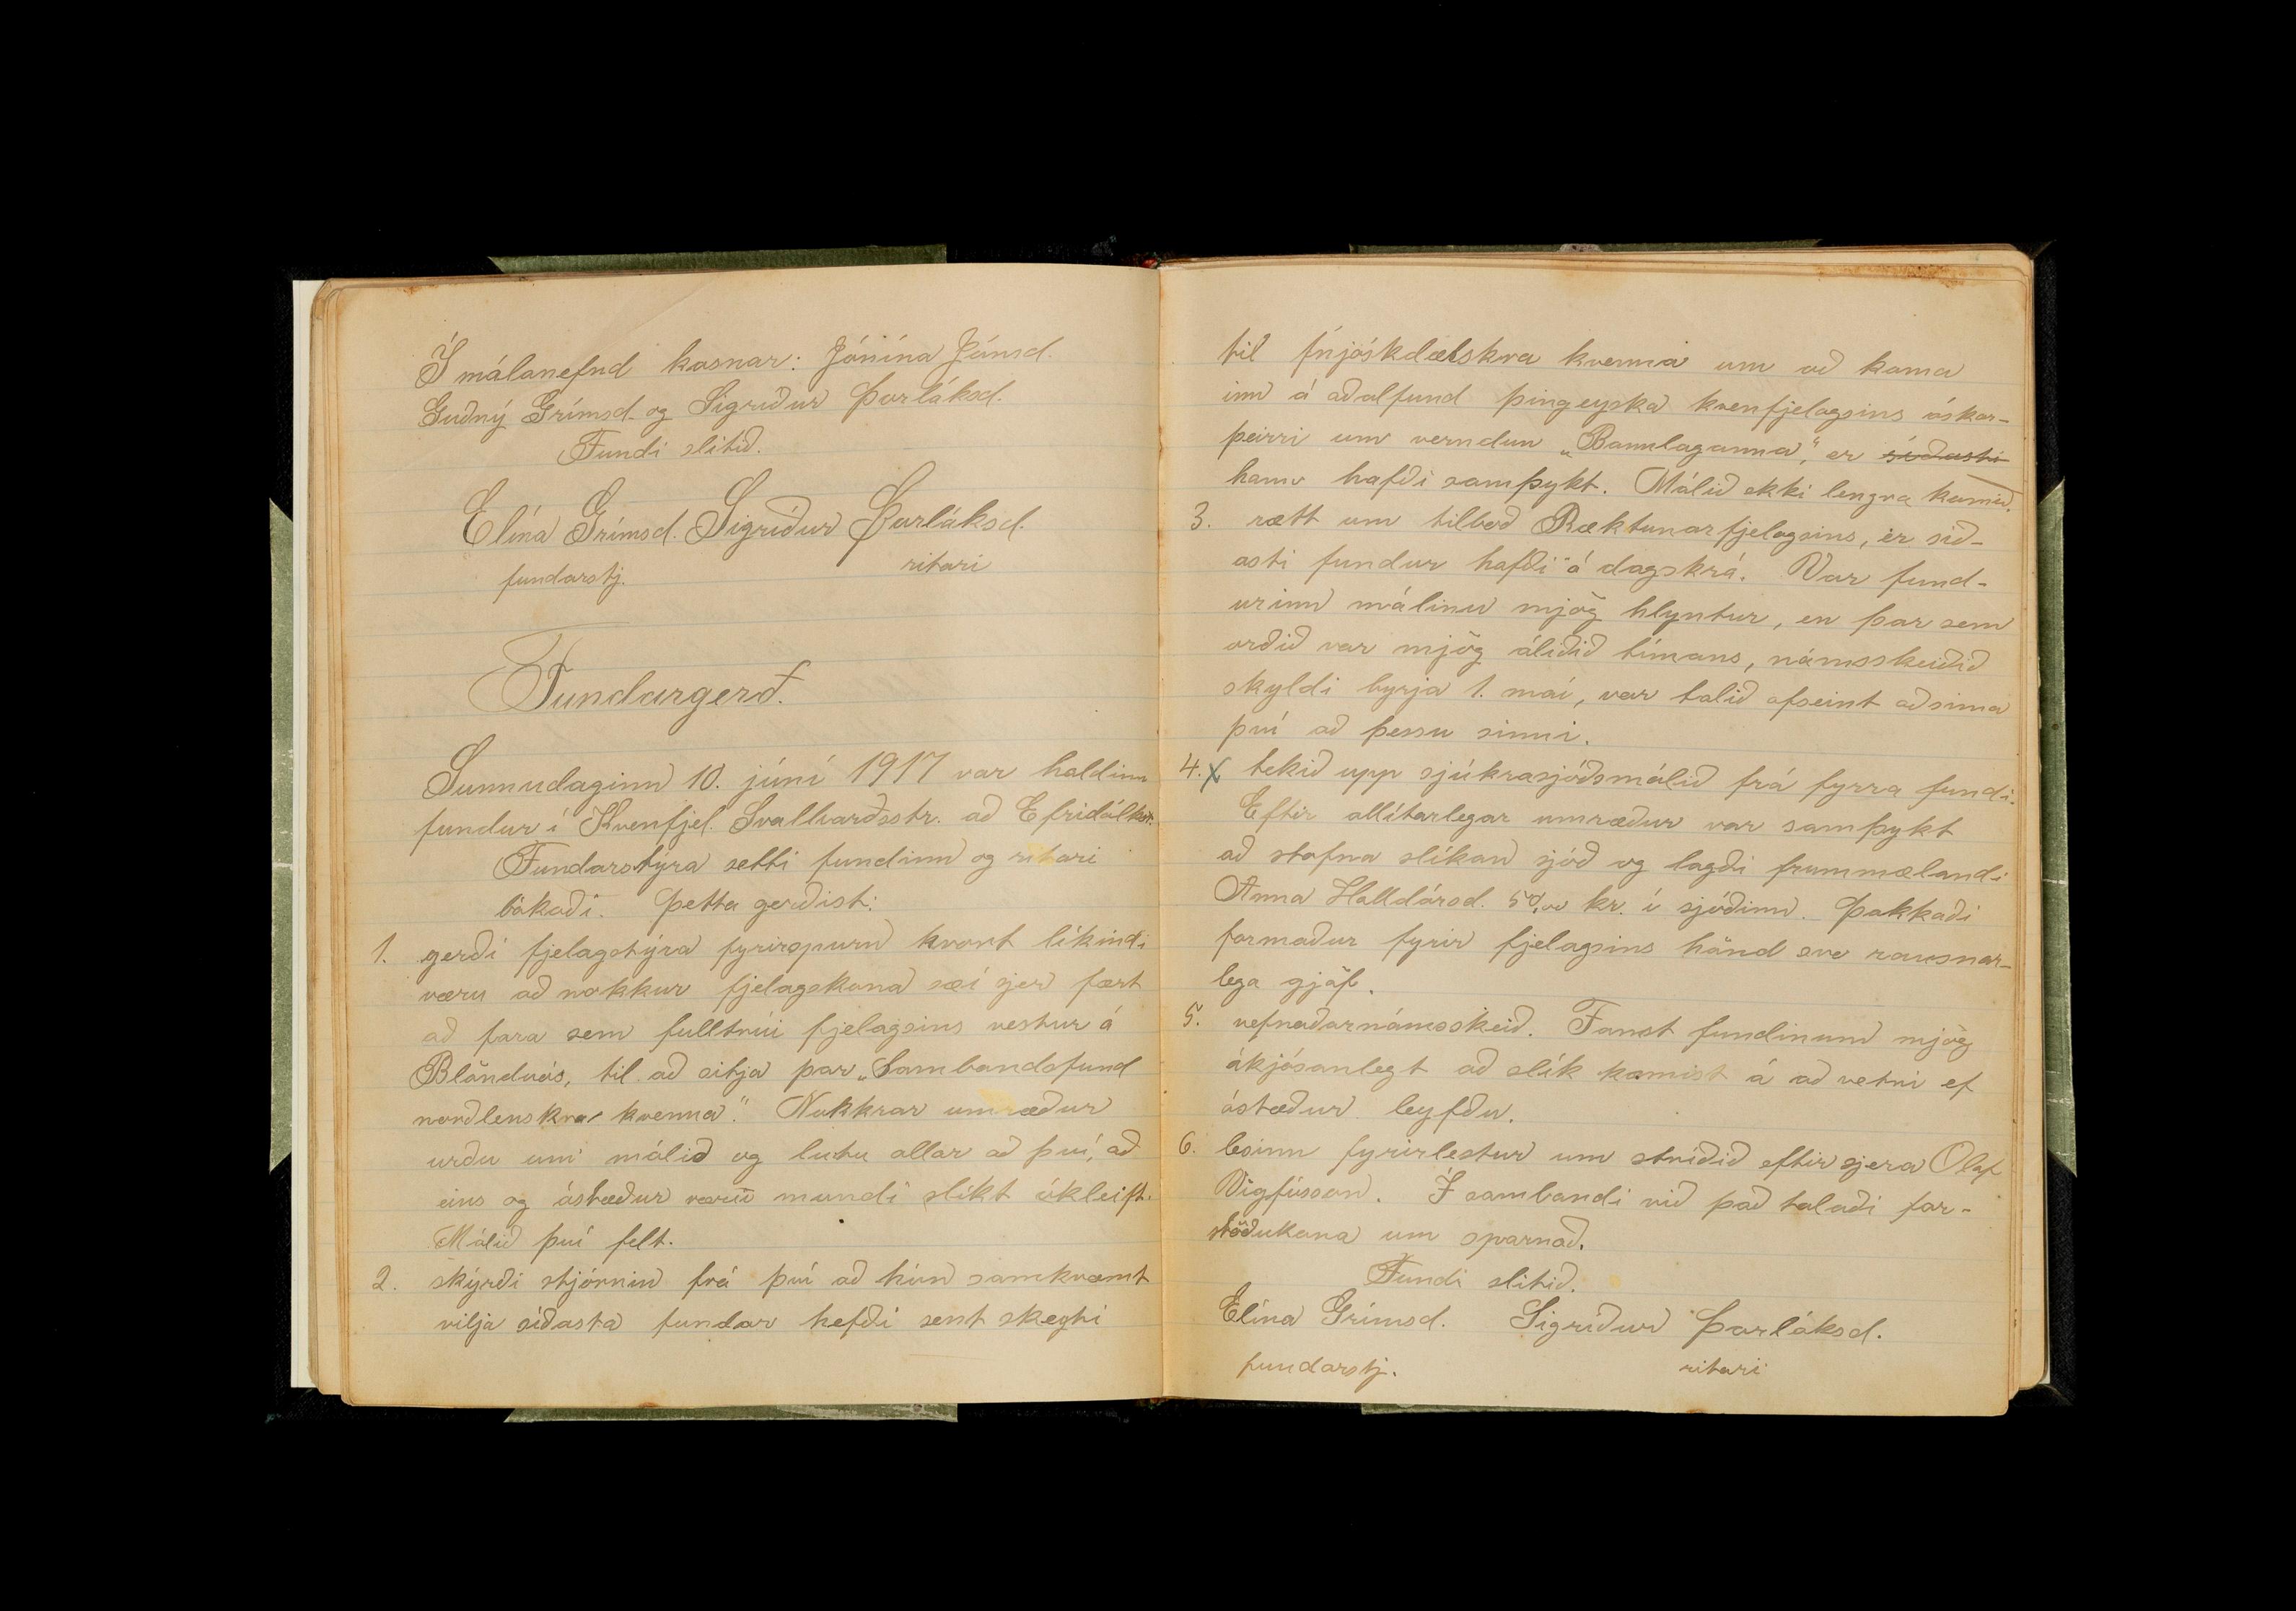 Í málanefnd kosnar: Jónína Jónsd.
Guðný Grímsd. og Sigríður Þorláksd.
Fundi slitið.
Elína Grímsd. Sigríður Þorláksd.
fundarstj. ritari
Fundargerð.
Sunnudaginn 10. júní 1917 var haldinn
fundur í Kvenfjel. Svalbarðsstr. að Efridálkst.
Fundarstýra setti fundinn og ritari
bókaði. Þetta gerðist:
1. gerði fjelagstýra fyrirspurn hvort líkindi
væru að nokkur fjelagskona sæi sjer fært
að fara sem fulltrúi fjelagsins vestur á
Blönduós, til að sitja þar „Sambandsfund
norðlenskra kvenna". Nokkrar umræður
urðu um málið og lutu allar að því, að
eins og ástæður væru mundi slíkt ókleift.
Málið því felt.
2. skýrði stjórnin frá því að hún samkvæmt
vilja síðasta fundar hefði sent skeyti
til fnjóskdælskra kvenna um að koma
inn á aðalfund þingeyska kvenfjelagsins áskor-
þeirri um verndun „Bannlaganna", er síðasti
hann hafði samþykt. Málið ekki lengra komið.
3. rætt um tilboð Ræktunarfjelagsins, er síð-
asti fundur hafði á dagskrá. Var fund-
urinn málinu mjög hlyntur, en þar sem
orðið var mjög áliðið tímans, námsskeiðið
skyldi byrja 1. maí, var talið ofseint að sinna
því að þessu sinni.
4. x tekið upp sjúkrasjóðsmálið frá fyrra fundi.
Eftir allítarlegar umræður var samþykt
að stofna slíkan sjóð og lagði frummælandi
Anna Halldórsd. 50,00 kr. í sjóðinn. Þakkaði
formaður fyrir fjelagsins hönd svo rausnar-
lega gjöf.
5. vefnaðarnámsskeið. Fanst fundinum mjög
ákjósanlegt að slík komist á að vetri ef
ástæður leyfðu.
6. lesinn fyrirlestur um stríðið eftir sjera Ólaf
Vigfússon. Í sambandi við það talaði for-
stöðukona um sparnað.
Fundi slitið.
Elína Grímsd. Sigríður Þorláksd.
fundarstj. ritari